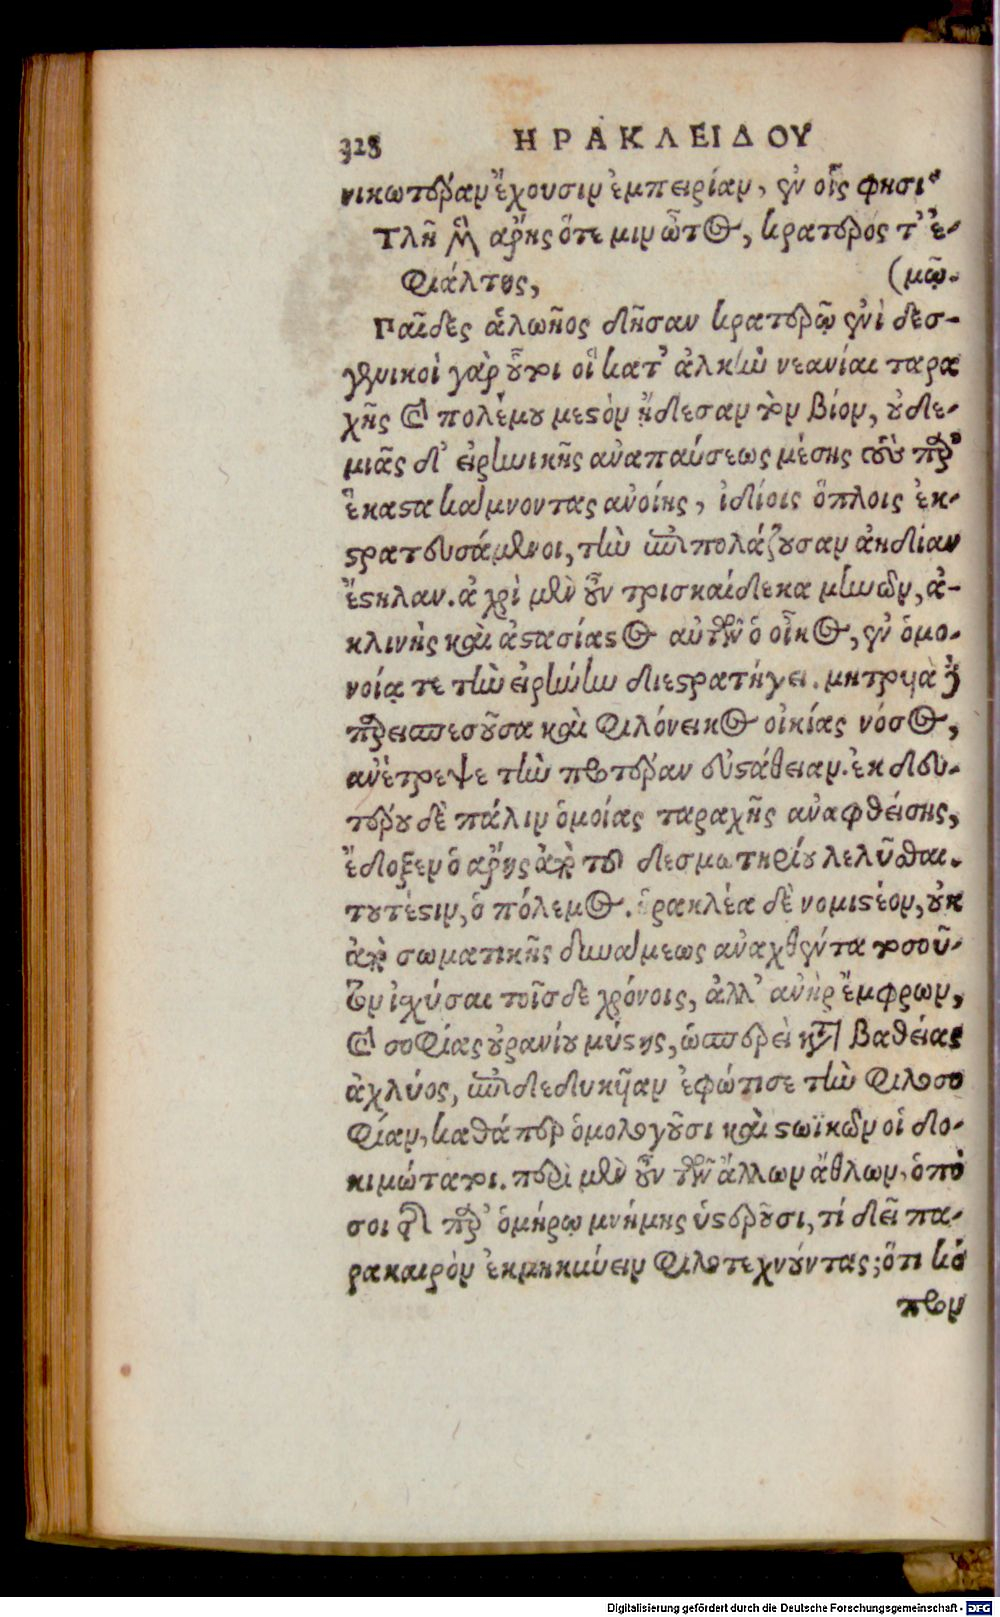 328 ΗΡΑΚΛΕΙΔΟΥ
νικωτέραν ἔχουσιν ἐμπειρίαν, ἐν οἷς φησι·
Τλῆ μὲν ἄρης ὅτε μιν ὦτος, κρατερός τ’ ἐ-
φιάλτης, (μῷ.
Παῖδες ἀλωῆος δῆσαν κρατερῷ ἐνὶ δεσ-
γενικοὶ γὰρ οὗτοι οἱ κατ’ ἀλκὴν νεανίαι ταρα
χῆς καὶ πολέμου μεστὸν ᾔδεσαν τὸν βίον, οὐδε-
μιᾶς δ’ εἰρηνικῆς ἀναπαύσεως μέσης τοὺς παρ’
ἕκαστα κάμνοντας ἀνοίης, ἰδίοις ὅπλοις ἐκ-
στρατευσάμενοι, τὴν ἐπιπολάζουσαν ἀηδίαν
ἔστηλαν. ἀχρὶ μὲν οὖν τρισκαίδεκα μηνῶν, ἀ-
κλινὴς καὶ ἀστασίαστος αὐτῶν ὁ οἶκος, ἐν ὁμο-
νοίᾳ τε τὴν εἰρήνην διεστρατήγει. μητρυιὰ δὲ
παρεισπεσοῦσα καὶ φιλόνεικος οἰκίας νόσος,
ἀνέτρεψε τὴν προτέραν εὐστάθειαν. ἐκ δευ-
τέρου δὲ πάλιν ὁμοίας ταραχῆς ἀναφθείσης,
ἔδοξεν ὁ ἄρης ἀπὸ τοῦ δεσμωτηρίου λελῦσθαι.
τουτέστιν, ὁ πόλεμος. ἡρακλέα δὲ νομιστέον, οὐκ
ἀπὸ σωματικῆς δυνάμεως ἀναχθέντα τοσοῦ-
τον ἰσχύσαι τοῖσδε χρόνοις, ἀλλ’ ἀνὴρ ἔμφρων,
καὶ σοφίας οὐρανίου μύστης, ὡσπερεὶ κατὰ βαθείας
ἀχλύος, ἐπιδεδυκυῖαν ἐφώτισε τὴν φιλοσο
φίαν, καθάπερ ὁμολογοῦσι καὶ στωϊκῶν οἱ δο-
κιμώτατοι. περὶ μὲν οὖν τῶν ἄλλων ἄθλων, ὁπό
σοι τῆς παρ’ ὁμήρῳ μνήμης ὑστεροῦσι, τί δεῖ πα-
ρακαιρὸν ἐκμηκύνειν φιλοτεχνοῦντας; ὅτι κό
προν
Digitalisierung gefördert durch die Deutsche Forschungsgemeinschaft - DFG